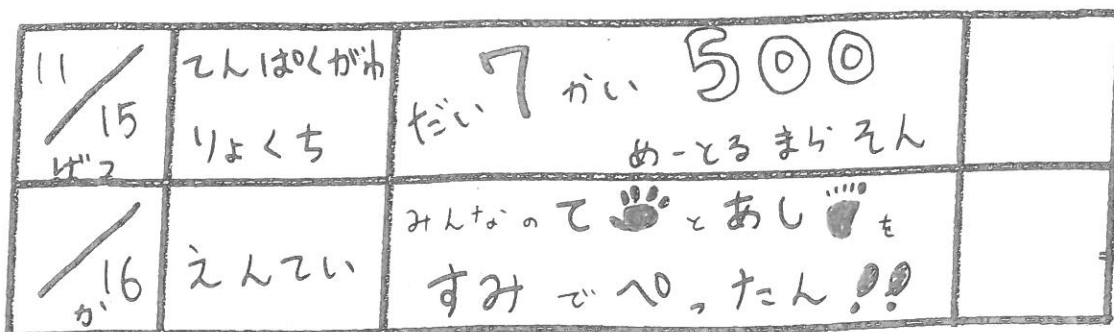 11/15
げつ
てんぱくがわ
りょくち
だい7かい 500
めーとるまらそん
/16
か
えんてい
みんなのてとあしを
すみでぺったん!!